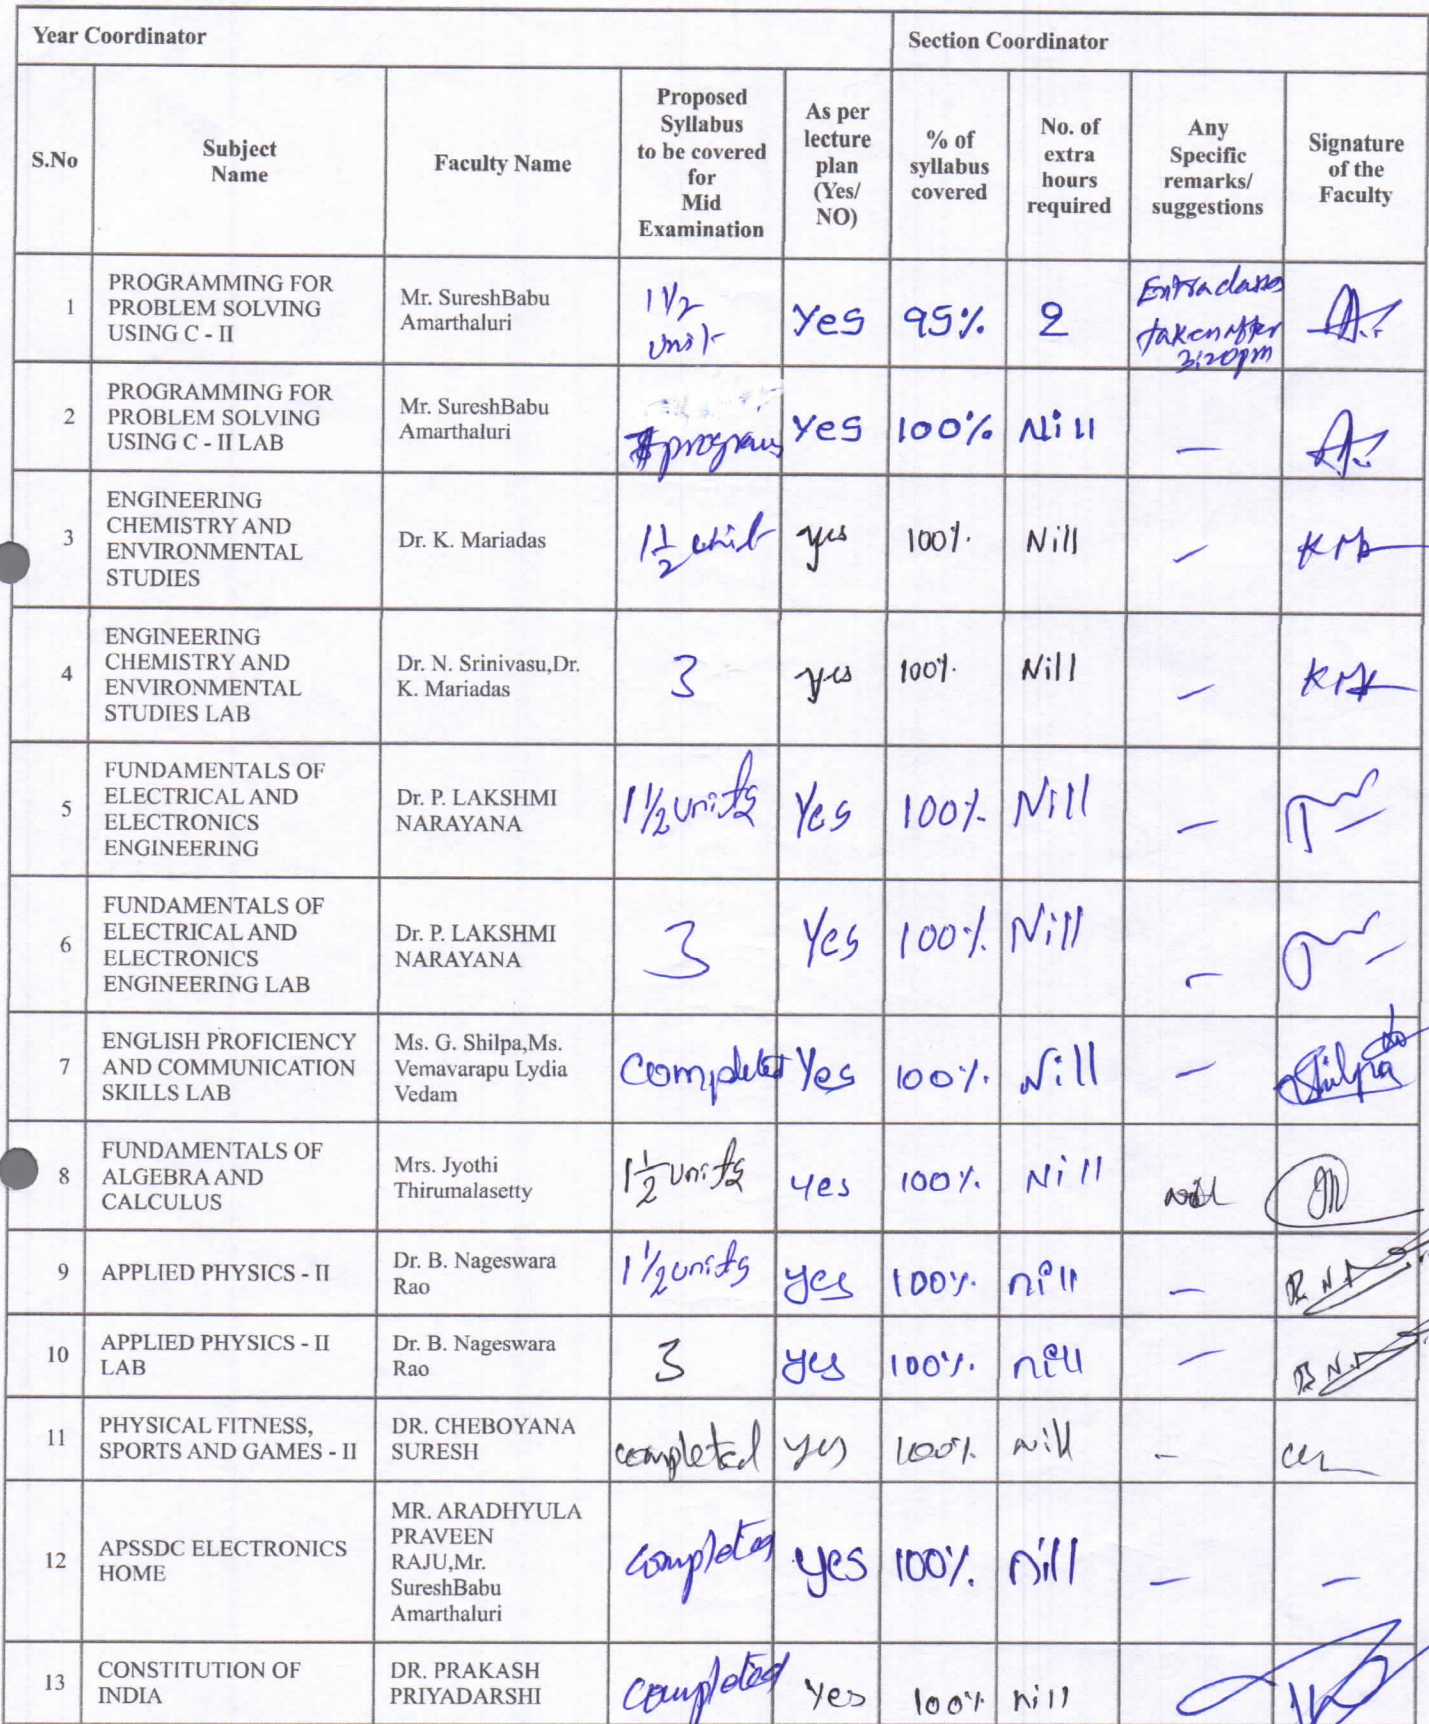 Year Coordinator Section Coordinator
S.No Subject Name Faculty Name Proposed Syllabus to be covered for Mid Examination As per lecture plan (Yes/ NO) % of syllabus covered No. of extra hours required Any Specific remarks/ suggestions Signature of the Faculty
1 PROGRAMMING FOR PROBLEM SOLVING USING C - II Mr. SureshBabu Amarthaluri 1 1/2 Yes 95% 2 taken after 3:20pm
2 PROGRAMMING FOR PROBLEM SOLVING USING C - II LAB Mr. SureshBabu Amarthaluri programs Yes 100% Nill –
3 ENGINEERING CHEMISTRY AND ENVIRONMENTAL STUDIES Dr. K. Mariadas 1 1/2 unit yes 100% Nill –
4 ENGINEERING CHEMISTRY AND ENVIRONMENTAL STUDIES LAB Dr. N. Srinivasu,Dr. K. Mariadas 3 yes 100% Nill –
5 FUNDAMENTALS OF ELECTRICAL AND ELECTRONICS ENGINEERING Dr. P. LAKSHMI NARAYANA 1 1/2 units Yes 100% Nill –
6 FUNDAMENTALS OF ELECTRICAL AND ELECTRONICS ENGINEERING LAB Dr. P. LAKSHMI NARAYANA 3 Yes 100% Nill –
7 ENGLISH PROFICIENCY AND COMMUNICATION SKILLS LAB Ms. G. Shilpa,Ms. Vemavarapu Lydia Vedam Completed Yes 100% Nill – Shilpa
8 FUNDAMENTALS OF ALGEBRA AND CALCULUS Mrs. Jyothi Thirumalasetty 1 1/2 units yes 100% Nill
9 APPLIED PHYSICS - II Dr. B. Nageswara Rao 1 1/2 units yes 100% nill –
10 APPLIED PHYSICS - II LAB Dr. B. Nageswara Rao 3 yes 100% nill –
11 PHYSICAL FITNESS, SPORTS AND GAMES - II DR. CHEBOYANA SURESH completed yes 100% nill –
12 APSSDC ELECTRONICS HOME MR. ARADHYULA PRAVEEN RAJU,Mr. SureshBabu Amarthaluri completed yes 100% nill – –
13 CONSTITUTION OF INDIA DR. PRAKASH PRIYADARSHI completed Yes 100% nill